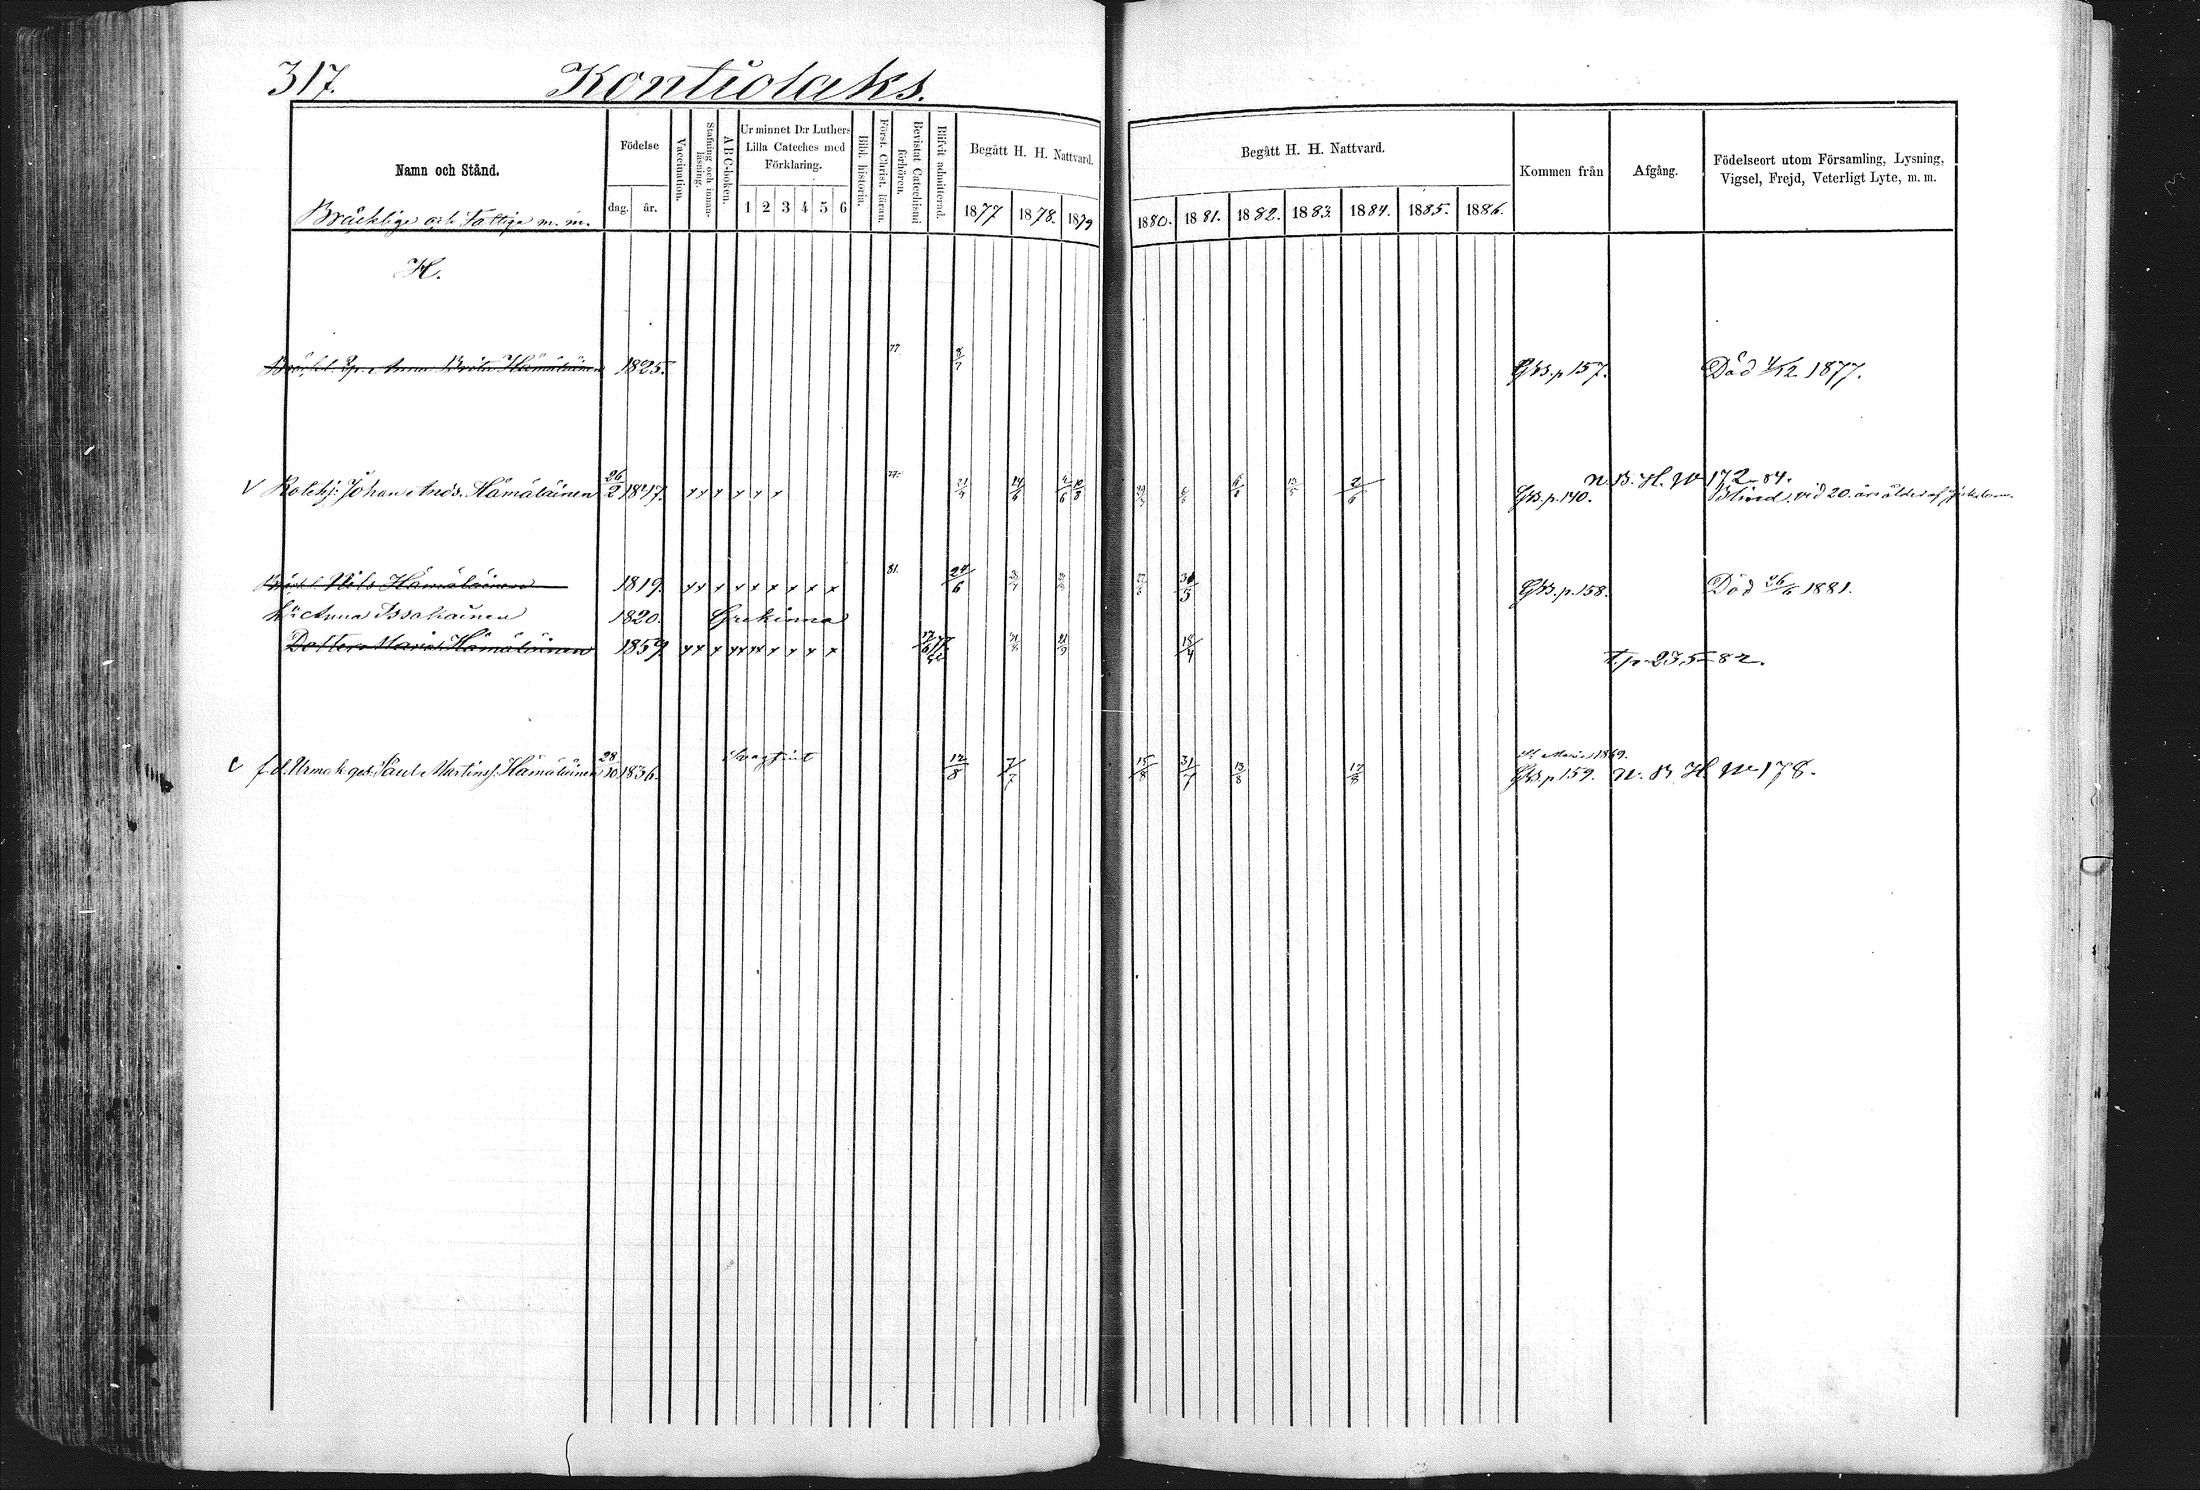 317. Kontiolaks.
Namn och Stånd.
Födelse
dag. år.
Vaccination.
Stafning och innanläsning.
ABC-boken.
Ur minnet D:r Luthers Lilla Cateches med Förklaring.
1 2 3 4 5 6
Bibl. historia.
Först. Christ. läran.
Bevistat Catechismi förhören.
Blifvit admitterad.
Begått H. H. Nattvard.
1877 1878. 1879
Begått H. H. Nattvard.
1880. 1881. 1882. 1883 1884. 1885. 1886.
Kommen från
Afgång.
Födelseort utom Församling, Lysning, Vigsel, Frejd, Veterligt Lyte, m. m.
Bräcklige och Fattige m. m.
H.
Anna Brita Hämäläinen 1825. 77 Gkb. p 157. Död 4/12 1877.
V Johan Ands. Hämäläinen 26/2 1847. 77. Gkb. p. 140. N. B. H. N 172 - 84.
Blind vid 20. års ålder af
Nils Hämäläinen 1819. 81. 24/6 31/5 Gkb. p. 158. Död 26/6 1881.
h: Anna Issakainen 1820. Grekinna
Dotter Maria Hämäläinen 1859 18/4 T. p. 235 - 82.
c f.d. Paul Martinss. Hämäläinen 28/10 1836. Svagsint 12/8 7/7 15/8 31/7 13/8 Gkb. p 159. N. B. H N 178.
1869.